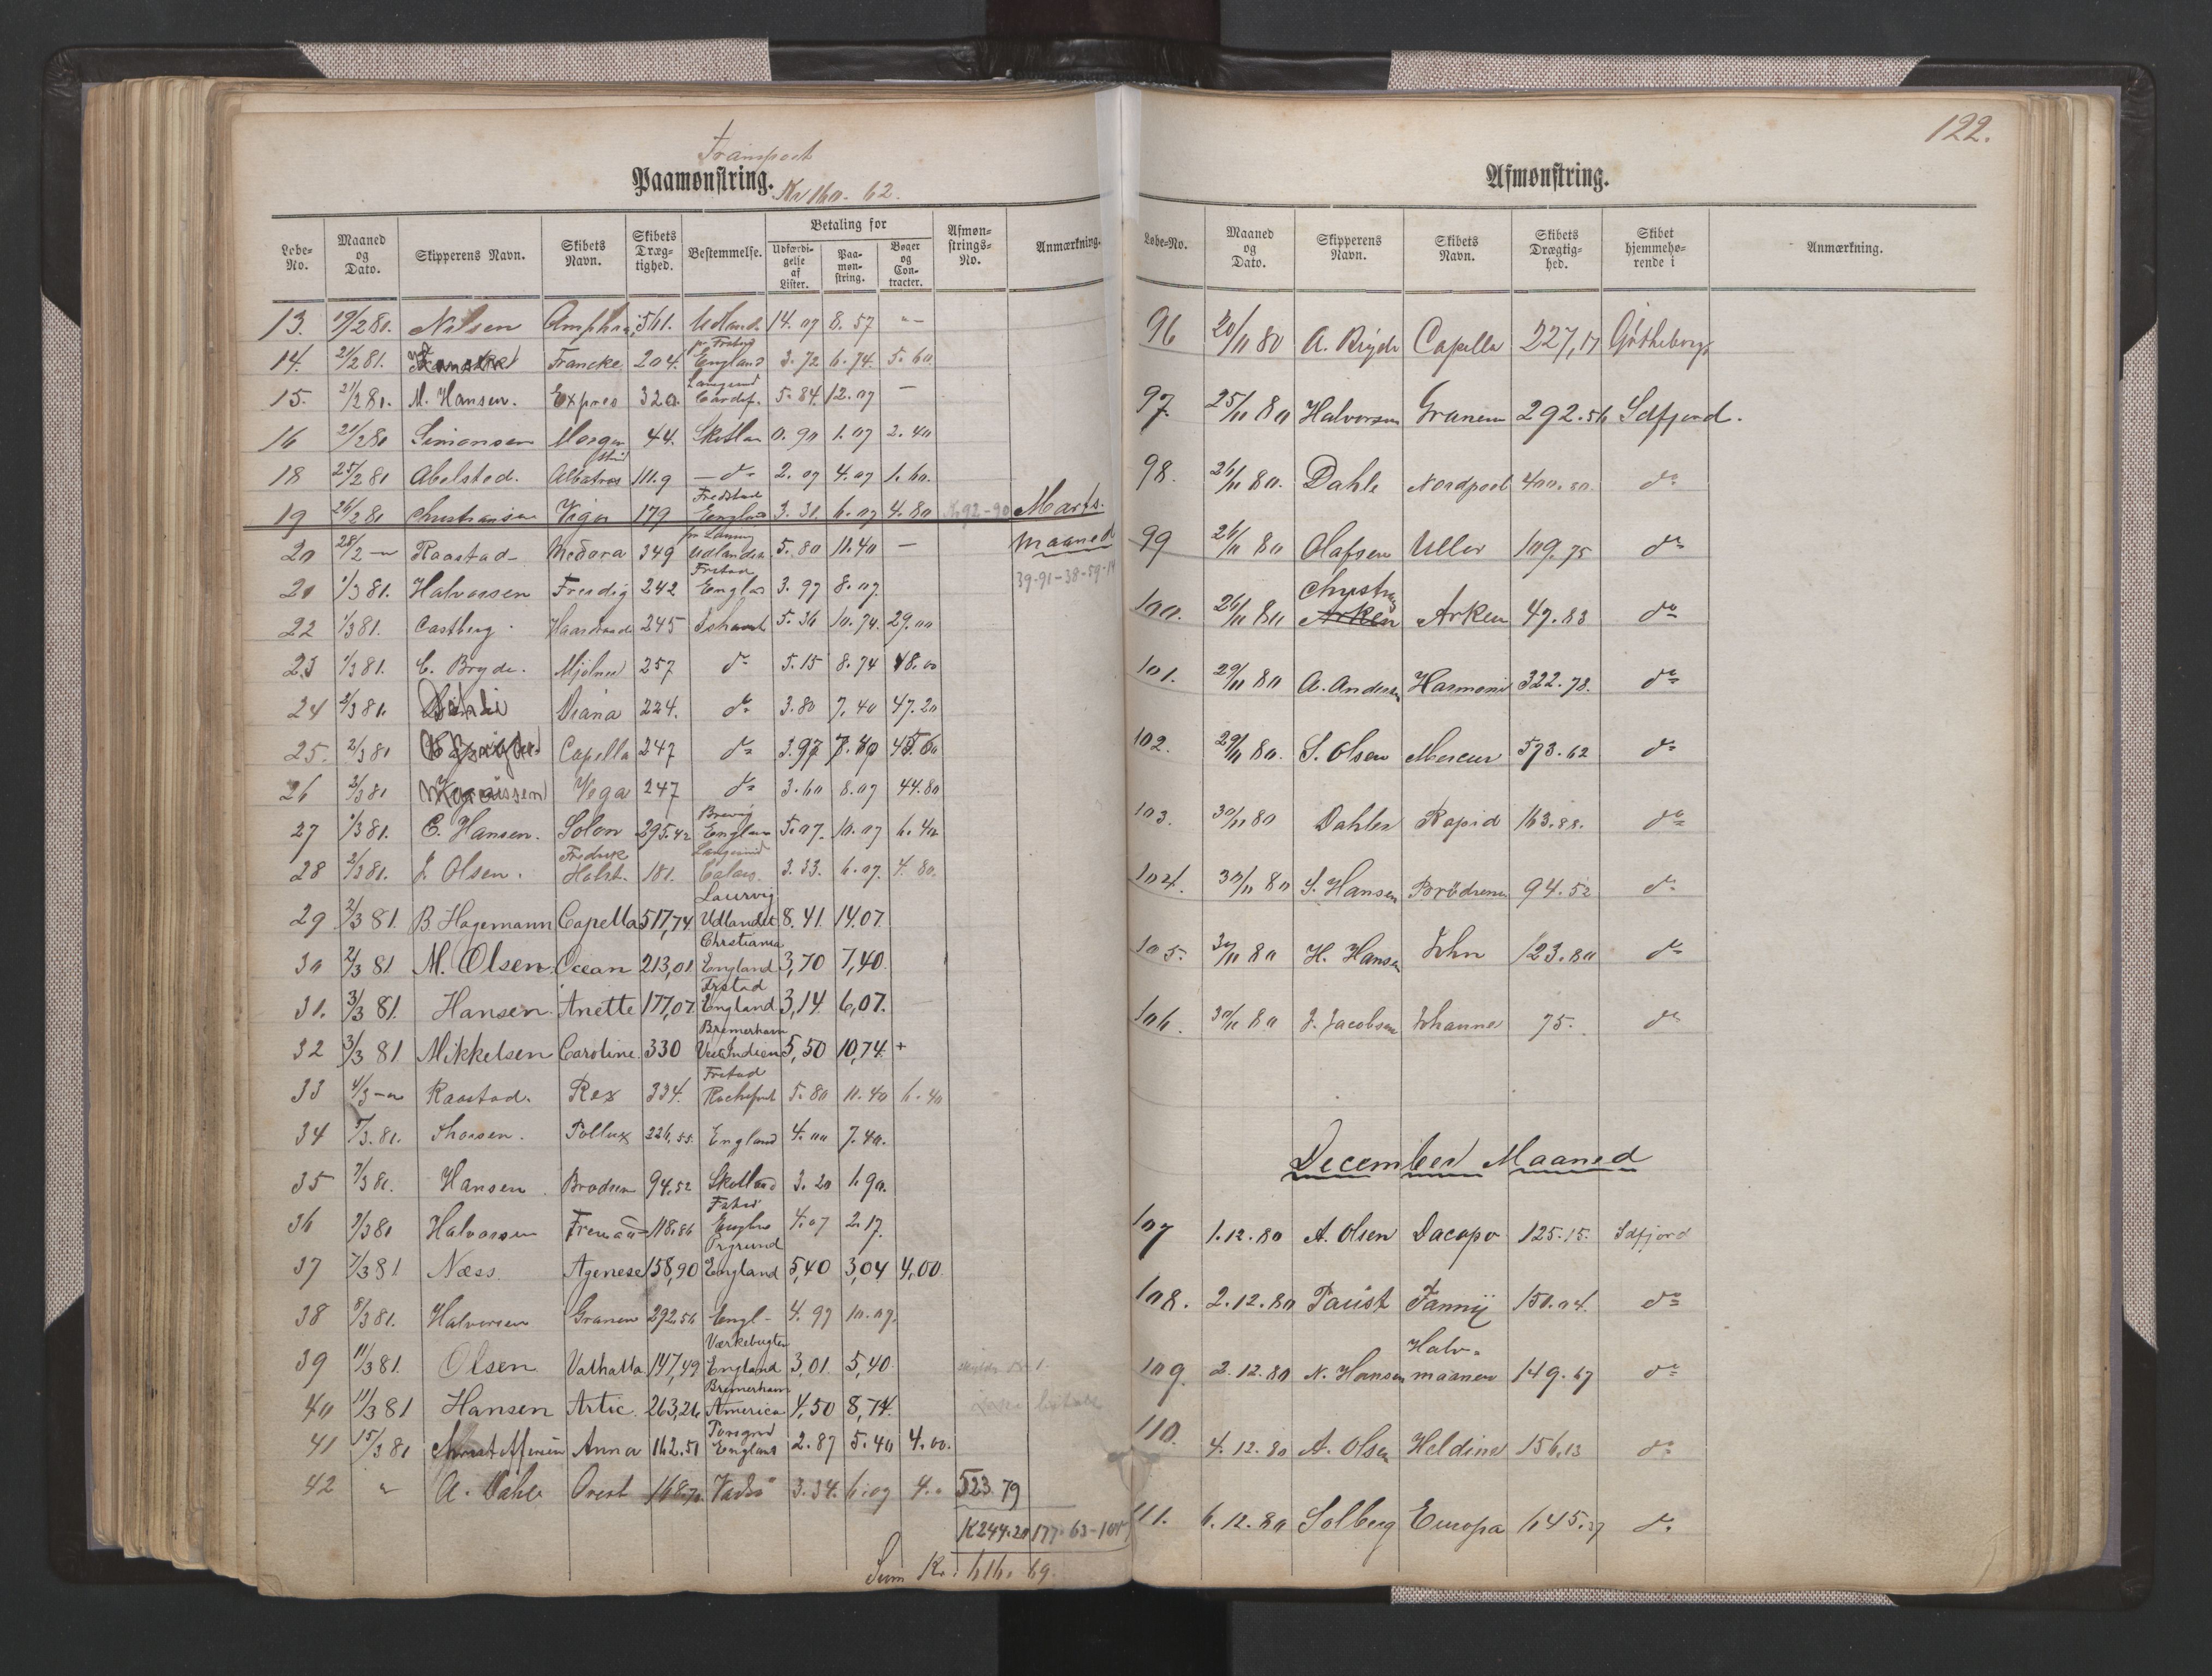 Transport
Paamønstring. Kr 160. 62.
Løbe-No. | Maaned og Dato. | Skipperens Navn. | Skibets Navn. | Skibets Dræg-tighed. | Bestemmelse. | Betaling for | Udfærdi-gelse af Lister. | Paa-møn-string. | Bøger og Con-tracter. | Afmøn-strings-No. | Anmærkning.
13. 19/2 81. Nilsen 561. Udland. 14.07 8.57 "—
14. 21/2 81. Francke 204. England 3.72 6.74. 5.60
15. 21/2 81. M. Hansen. Expres 320. Langesund Cardif. 5.84. 12.07 —
16 21/2 81 Simonsen Morgen 44. Skotlan 0.90 1.07 2.40
18 25/2 81 Abelsted. Albatros 111.9 — do 2.07 4.07 1.60.
19 26/2 81 Christiansen Viga 179 Fredstad England 3.31. 6.07 4.80 K 92-90 Marts
20 28/2 — Raastad Medora 349 Udlandet 5.80 11.40 — maaned
39-91-38-59-14
21 1/3 81. Halvorsen Freidig 242 Frstad England 3.97 8.07.
22 1/3 81. Castberg. 245 Ishavet 5.36 10.74. 29.00
23 1/3 81. C. Bryde. Mjølner 257 do 5.15 8.74 48.00
24 2/3 81. Diana 224. do 3.80 7.40 47.20
25. 2/3 81 Capella 247 do 3.97 7.40 45.60
26 2/3 81 Vega 247 do 3.60 8.07 44.80
27 1/3 81. C. Hansen. Solon 295.42 Brevig England 5.07. 10.07 6.40
28 2/3 81. J. Olsen. Fredrik Holst. 181. Langesund Calais. 3.33. 6.07. 4.80.
29 2/3 81. B. Hagemann Capella 517,74 Laurvig Udlandet 8.41. 14.07.
30 2/3 81 M. Olsen. Ocean 213,01 Christiania England 3,70 7,40.
31. 3/3 81. Hansen. Anette 177,07. Frstad England 3,14 6,07.
32 3/3 81 Mikkelsen Caroline. 330 Bremerhavn Vestindien 5,50 10,74. +
33 4/3 — Raastad. Rex 334. Frstad Rochefort 5.80 11.40 6.40
34 5/3. 81. Thorsen. Pollux 226,55. England 4.00 7.40.
35 7/3 81. Hansen. Brødrene 94.52 Skotland 3.20 1.90.
36 7/3 81 Halvorsen 118.86 England 4.07 2.17.
37 7/3 81. Næss. Agenese 158,90 Prgrund England 5,40 3,04 4,00.
38 8/3 81. Halvorsen Granen 292.56 Engl- 4.97 10.07.
39 11/3 81. Olsen Valhalla 147,49 Værkebugten England 3,01. 5,40.
40 11/3 81 Hansen Artic. 263,26 Bremerhavn America 4,50 8,74.
41 15/3 81 Christoffersen Anna 162.51 Porsgrd England 2.87 5.40 4.00.
42 " A. Dahl Orest 168.70 Vadsø 3.34. 6.07 4.. 523 79
K 244.20 177.63-104
Sum Kr. 616. 69.
122.
Afmønstring.
Løbe-No. | Maaned og Dato. | Skipperens Navn. | Skibets Navn. | Skibets Drægtig-hed. | Skibet hjemmehø-rende i | Anmærkning.
96 20/11 80 A. Bryde Capella 227,17 Gøtheborg
97. 25/11 80 Halvorsen Granen 292.56 Idfjord.
98. 26/11 80. Dahl Nordpool 400.80 do
99 26/11 80 Olafsen Uller 109.75 do
Christens
100. 26/11 80 Arken Arken 47.83 do
101. 29/11 80 A. Andersen Harmoni 322.78. do
102. 29/11 80. S. Olsen Mercur 573.62 do
103. 30/11 80 Dahler Rapid 163.88. do
104. 30/11 80 S. Hansen Brødrene 94.52 do
105. 30/11 80 H. Hansen John 123.80 do
106. 30/11 80 J. Jacobsen Johanne 75. do
December Maaned
107 1.12.80 A. Olsen Dacapo 125.15. Idfjord
108. 2.12.80 Paust Fanny 150.04. do
109. 2.12.80 N. Hansen Halv-maanen 149.67 do
110. 4.12.80 A. Olsen Heldine 156.13 do
111. 6.12.80 Solberg Europa 645.27 do